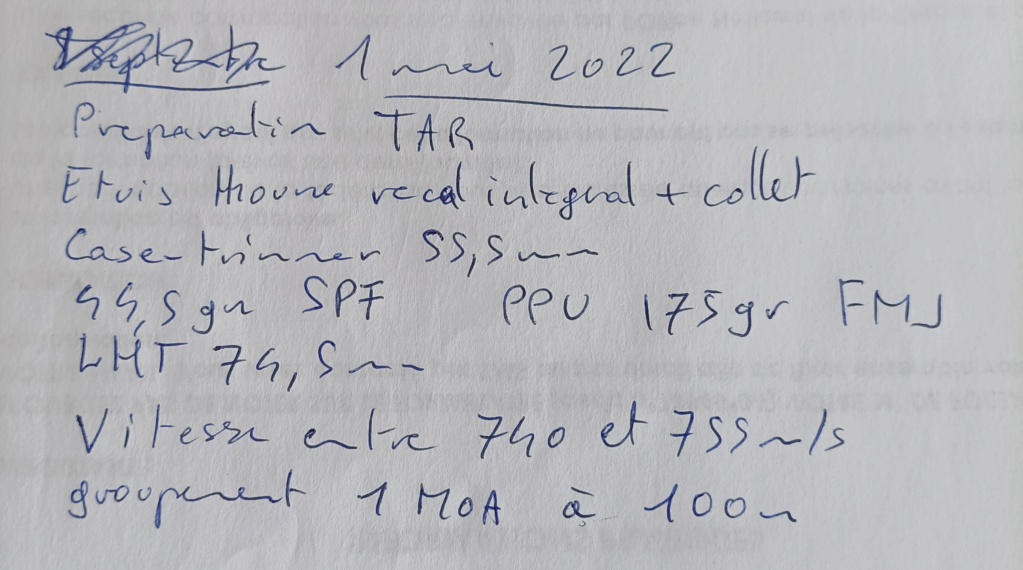 1 mai 2022
Preparation TAR
Etuis Thoune recal integral + collet
Case-trimmer 55,5 mm
44,5 gr SPF PPU 175 gr FMJ
LHT 74,5 mm
Vitesse entre 740 et 755 m/s
groupement 1 MOA à 100 m